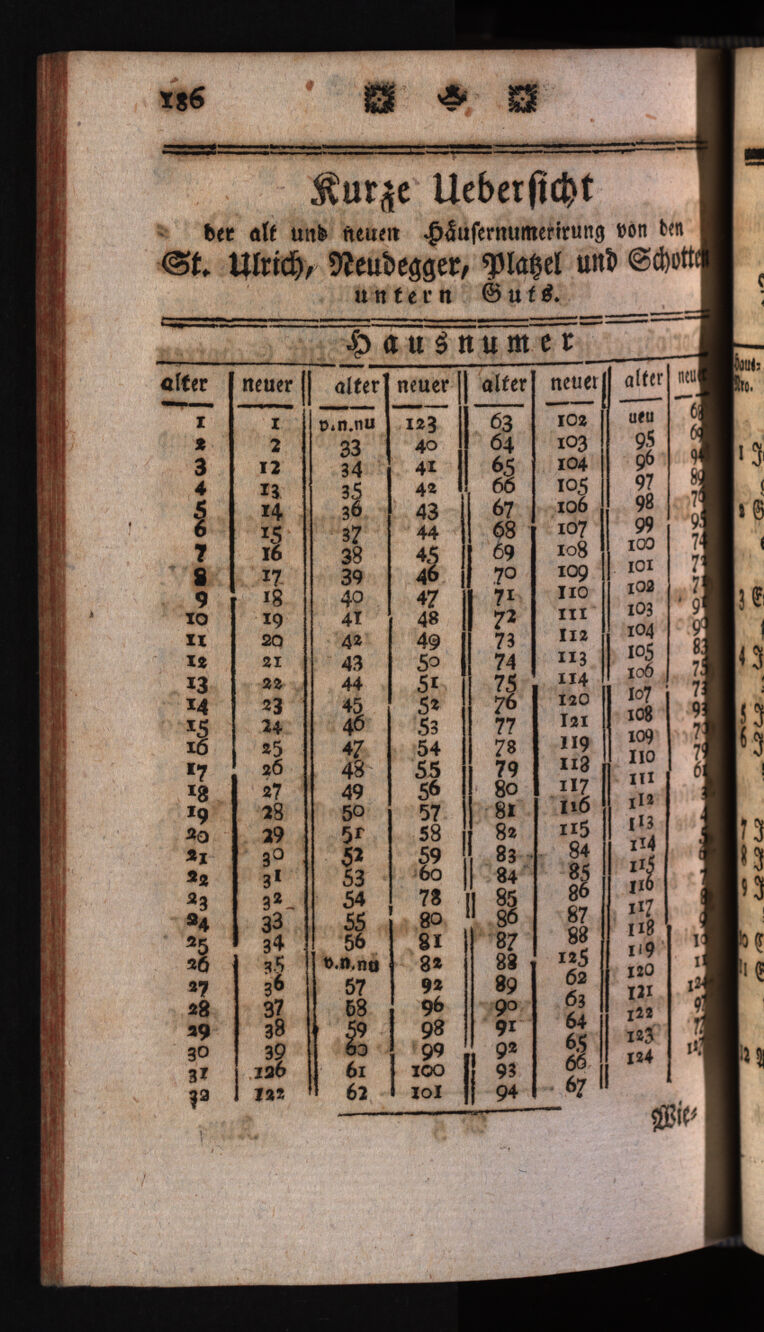 186
Kurze Uebersicht
der alt und neuen Häusernumerirung von den
St. Ulrich, Neudegger, Platzel und
untern Guts.
Hausnumer
alter neuer alter neuer alter neuer alter
1 1 v.n.nu 123 63 102 ueu
2 2 33 40 64 103 95
3 12 34 41 65 104 96
4 13 35 42 66 105 97
5 14 36 43 67 106 98
6 15 37 44 68 107 99
7 16 38 45 69 108 100
8 17 39 46 70 109 101
9 18 40 47 71 110 102
10 19 41 48 72 111 103
11 20 42 49 73 112 104
12 21 43 50 74 113 105
13 22 44 51 75 114 106
14 23 45 52 76 120 107
15 24 46 53 77 121 108
16 25 47 54 78 119 109
17 26 48 55 79 118 110
18 27 49 56 80 117 111
19 28 50 57 81 116 112
20 29 51 58 82 115 113
21 30 52 59 83 84 114
22 31 53 60 84 85 115
23 32 54 78 85 86 116
24 33 55 80 86 87 117
25 34 56 81 87 88 118
26 35 v.n.nu 82 88 125 119
27 36 57 92 89 62 120
28 37 58 96 90 63 121
29 38 59 98 91 64 122
30 39 60 99 92 65 123
31 126 61 100 93 66 124
32 122 62 101 94 67
Wie-